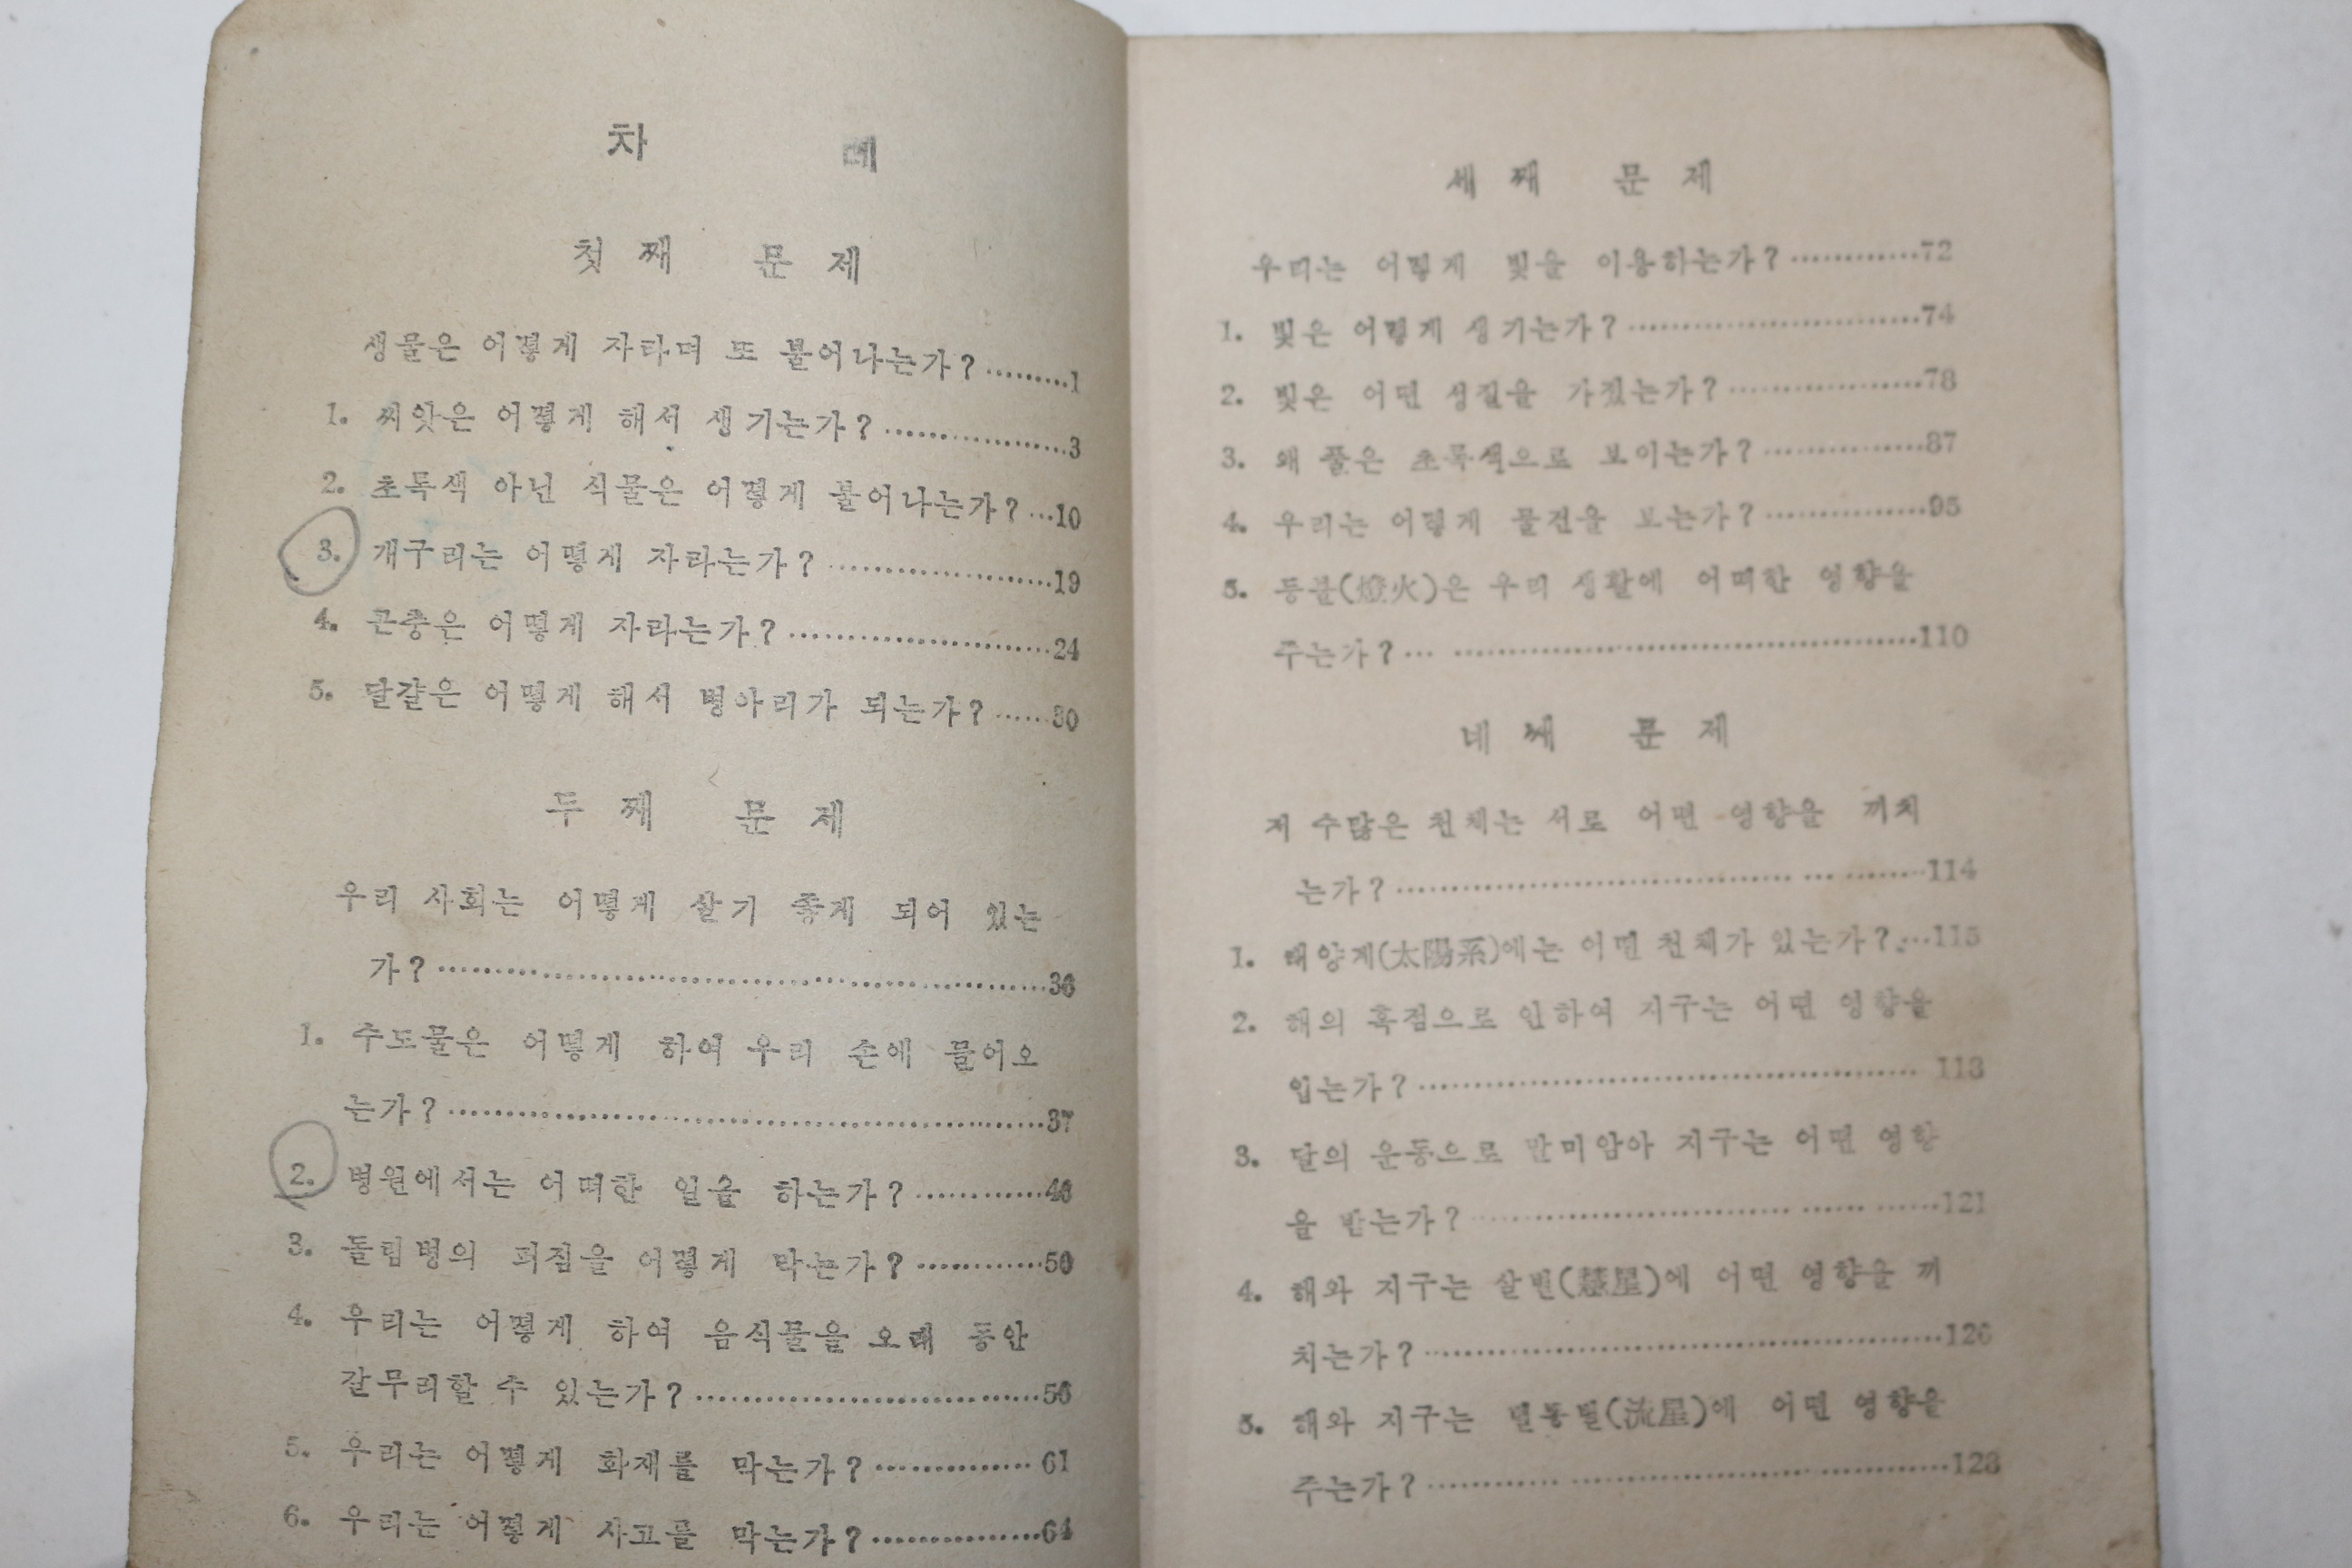 차 례
첫째 문제
생물은 어떻게 자라며 또 불어나는가?………1
1. 씨앗은 어떻게 해서 생기는가?………………3
2. 초록색 아닌 식물은 어떻게 불어나는가?…10
3. 개구리는 어떻게 자라는가?…………………19
4. 곤충은 어떻게 자라는가?……………………24
5. 달걀은 어떻게 해서 병아리가 되는가?……30
두째 문제
우리 사회는 어떻게 살기 좋게 되어 있는
가?……………………………………………36
1. 수도물은 어떻게 하여 우리 손에 들어오
는가?…………………………………………37
2. 병원에서는 어떠한 일을 하는가?…………
3. 돌림병의 퍼짐을 어떻게 막는가?…………50
4. 우리는 어떻게 하여 음식물을 오래 동안
갈무리할 수 있는가?…………………………56
5. 우리는 어떻게 화재를 막는가?……………61
6. 우리는 어떻게 사고를 막는가?……………64
세째 문제
우리는 어떻게 빛을 이용하는가?…………72
1. 빛은 어떻게 생기는가?……………………74
2. 빛은 어떤 성질을 가졌는가?………………78
3. 왜 풀은 초록색으로 보이는가?……………87
4. 우리는 어떻게 물건을 보는가?……………95
5. 등불(燈火)은 우리 생활에 어떠한 영향을
주는가?… …………………………………110
네째 문제
저 수많은 천체는 서로 어떤 영향을 끼치
는가?……………………………… … ………114
1. 태양계(太陽系)에는 어떤 천체가 있는가?…115
2. 해의 흑점으로 인하여 지구는 어떤 영향을
입는가?……………………………………… 118
3. 달의 운동으로 말미암아 지구는 어떤 영향
을 받는가?………………………… …… ……121
4. 해와 지구는 살별(彗星)에 어떤 영향을 끼
치는가?…………………………………………126
5. 해와 지구는 별동별(流星)에 어떤 영향을
주는가?………… ………………… …………128